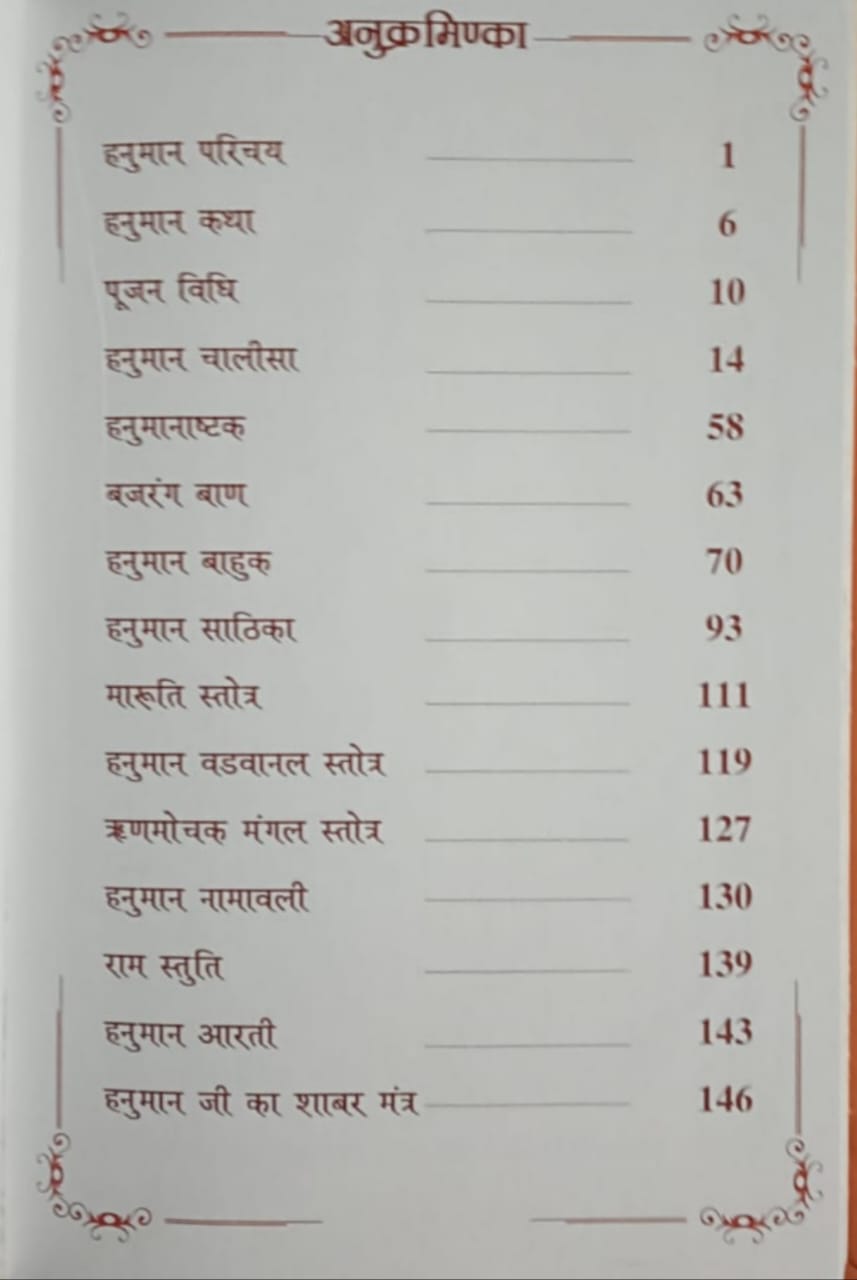 अनुक्रमिण्का
हनुमान परिचय 1
हनुमान कथा 6
पूजन विधि 10
हनुमान चालीसा 14
हनुमानाष्टक 58
बजरंग बाण 63
हनुमान बाहुक 70
हनुमान साठिका 93
मारूति स्तोत्र 111
हनुमान वडवानल स्तोत्र 119
ऋणमोचक मंगल स्तोत्र 127
हनुमान नामावली 130
राम स्तुति 139
हनुमान आरती 143
हनुमान जी का शाबर मंत्र 146